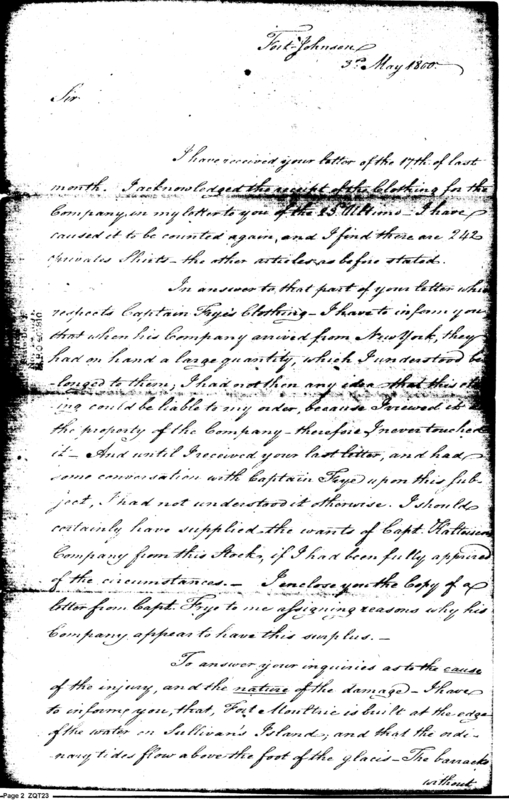 Fort Johnson
3d. May 1800.
Sir
I have received your letter of the 17th. of last
month. I acknowledged the receipt of the Clothing for the
Company, in my letter to you of the 23d. Ultimo - I have
caused it to be counted again, and I find there are 242
Privates Shirts - the other articles as before stated.
In answer to that part of your letter which
respects Captain Frye's Clothing - I have to inform you
that when his Company arrived from New York, they
had on hand a large quantity, which I understood be
-longed to them; I had not then any idea that this
could be liable to my order, because I viewed it
the property of the Company - therefore I never touched
it - And until I received your last letter, and had
some conversation with Captain Frye upon this sub-
ject, I had not understood it otherwise. I should
certainly have supplied the wants of Capt.
Company from this Stock, if I had been fully apprised
of the circumstances. - I enclose you the Copy of a
letter from Capt. Frye to me assigning reasons why his
Company appear to have this surplus. -
To answer your inquiries as to the cause
of the injury, and the nature of the damage - I have
to inform you, that, Fort Moultrie is built at the edge
of the water on Sullivan's Island; and that the ordi-
nary tides flow above the foot of the glacis - The barracks
without
Page 2 ZQT23